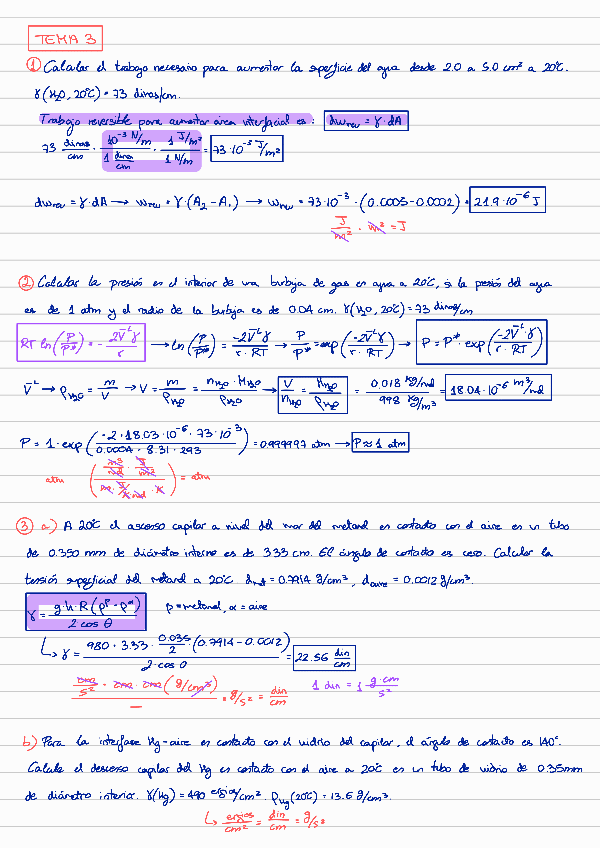 TEMA 3
① Calcular el trabajo necesario para aumentar la superficie del agua desde 2.0 a 5.0 cm² a 20°C.
γ(H₂O, 20°C) = 73 dinas/cm.
Trabajo reversible para aumentar área interfacial es: dw_rev = γ·dA
73 dinas/cm · 10⁻³ N/m / 1 dina/cm · 1 J/m² / 1 N/m = 73·10⁻³ J/m²
dw_rev = γ·dA → w_rev = γ·(A₂ - A₁) → w_rev = 73·10⁻³ · (0.0005-0.0002) = 21.9·10⁻⁶ J
J/m² · m² = J
② Calcular la presión en el interior de una burbuja de gas en agua a 20°C, si la presión del agua
es de 1 atm y el radio de la burbuja es de 0.04 cm. γ(H₂O, 20°C) = 73 dinas/cm
RT ln(P/P*) = - 2V̄ᴸγ/r → ln(P/P*) = -2V̄ᴸγ/r·RT → P/P* = exp(-2V̄ᴸγ/r·RT) → P = P*·exp(-2V̄ᴸγ/r·RT)
V̄ᴸ → ρH₂O = m/V → V = m/ρH₂O = nH₂O·MH₂O/ρH₂O → V/nH₂O = MH₂O/ρH₂O = 0,018 kg/mol / 998 kg/m³ = 18.04·10⁻⁶ m³/mol
P = 1·exp(-2·18.03·10⁻⁶·73·10⁻³ / 0.0004·8.31·293) = 0.999997 atm → P ≈ 1 atm
atm (m³/mol · J/m² / m · J/K·mol · K) = atm
③ a) A 20°C el ascenso capilar a nivel del mar del metanol en contacto con el aire en un tubo
de 0.350 mm de diámetro interno es de 3.33 cm. El ángulo de contacto es cero. Calcular la
tensión superficial del metanol a 20°C d_met = 0.7914 g/cm³, d_aire = 0.0012 g/cm³.
γ = g·h·R(ρᵝ-ρᵅ) / 2 cos θ β = metanol, α = aire
↳ γ = 980·3.33·0.035/2·(0.7914-0.0012) / 2·cos 0 = 22.56 din/cm
cm/s² · cm · cm (g/cm³) / — = g/s² = din/cm 1 din = 1 g·cm/s²
b) Para la interfase Hg-aire en contacto con el vidrio del capilar, el ángulo de contacto es 140°.
Calcule el descenso capilar del Hg en contacto con el aire a 20°C en un tubo de vidrio de 0.35mm
de diámetro interior. γ(Hg) = 490 ergios/cm². ρHg(20°C) = 13.6 g/cm³.
↳ ergios/cm² = din/cm = g/s²